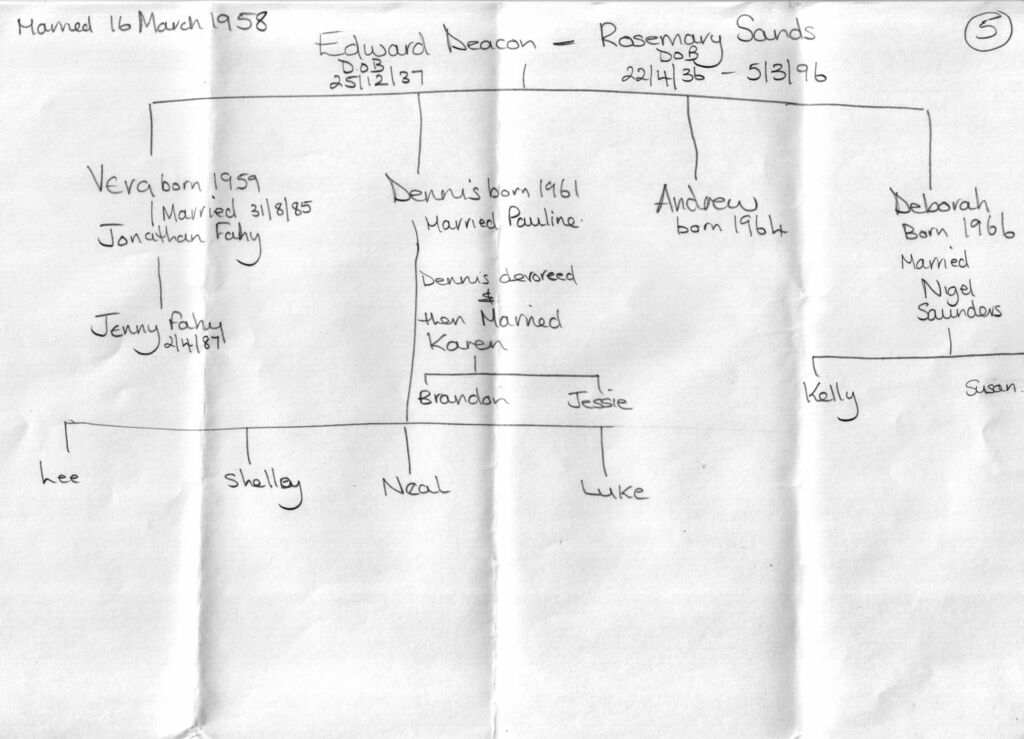 Married 16 March 1958
5
Edward Deacon - Rosemary Sands
DoB
25/12/37
DoB
22/4/36 - 5/3/96
Vera born 1959
Married 31/8/85
Jonathan Fahy
Jenny Fahy
2/4/87
Dennis born 1961
Married Pauline.
Dennis devoreed
&
then Married
Karen
Brandon
Jessie
Andrew
born 1964
Deborah
Born 1966
Married
Nigel
Saunders
Kelly
Susan.
Lee
Shelley
Neal
Luke